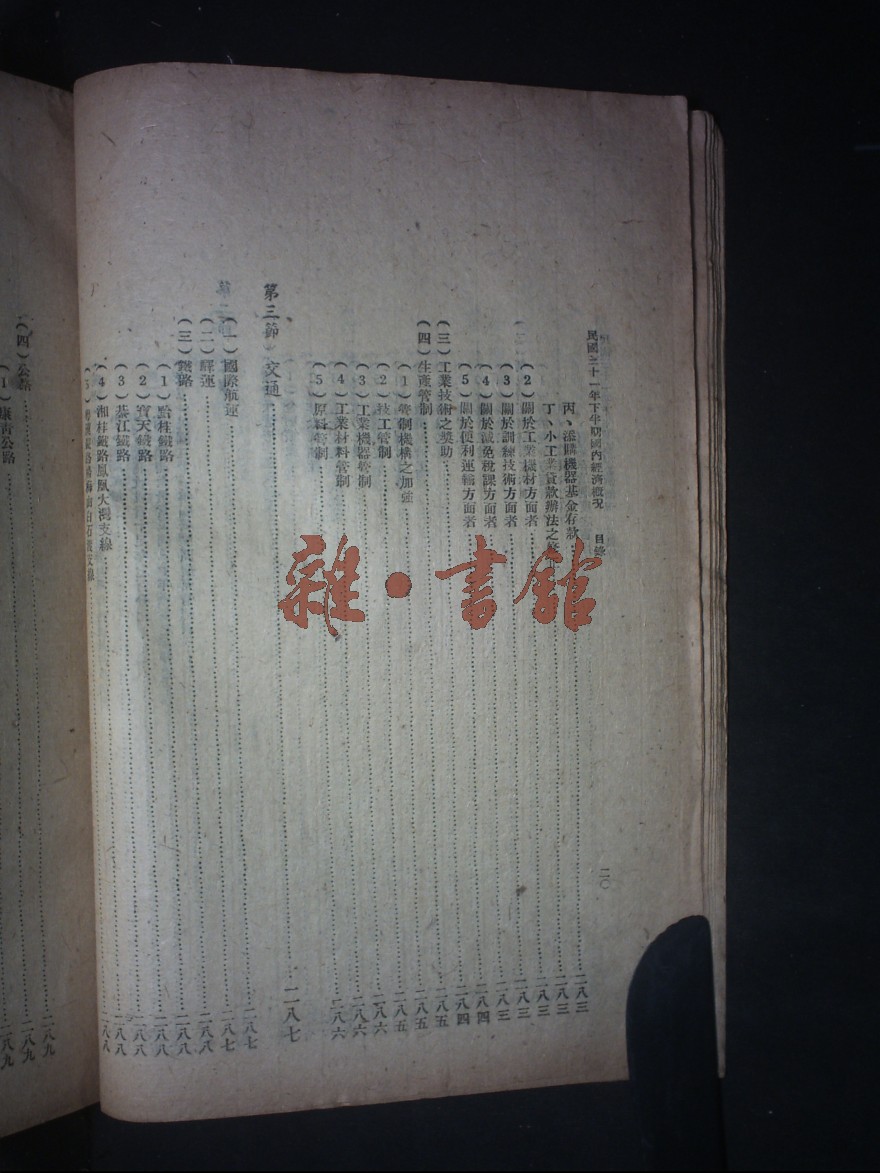 民國三十一年下半期國內經濟概況 目錄 二〇
丙、添購機器基金存款……二八三
丁、小工業貸款辦法之……二八三
(2)關於工業機材方面者……二八三
(3)關於訓練技術方面者……二八三
(4)關於減免稅課方面者……二八四
(5)關於便利運輸方面者……二八四
(三)工業技術之獎助……二八五
(四)生產管制……二八五
(1)管制機構之加強……二八五
(2)技工管制……二八六
(3)工業機器管制……二八六
(4)工業材料管制……二八六
(5)原料管制
第三節 交通……二八七
(一)國際航運……二八七
(二)驛運……二八七
(三)鐵路……二八八
(1)黔桂鐵路……二八八
(2)寶天鐵路……二八八
(3)綦江鐵路……二八八
(4)湘桂鐵路鳳凰大灣支線……二八八
支線
(四)公路……二八九
(1)康青公路……二八九
雜·書館